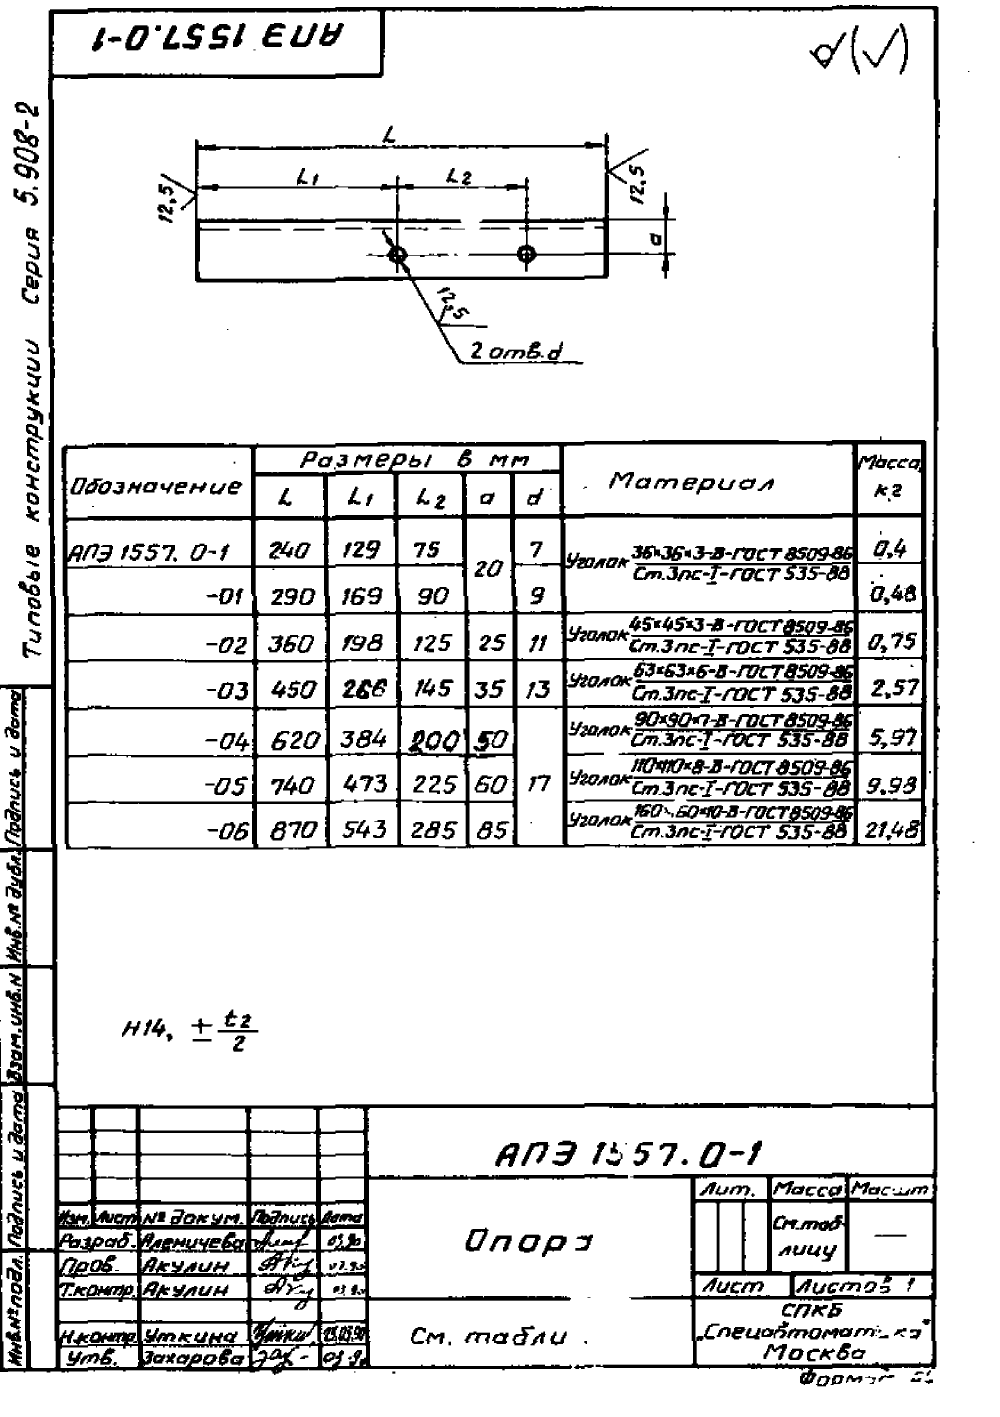 АПЭ 1557.0-1
Типовые конструкции Серия 5.908-2
L
L1 L2
12,5
12,5
a
12,5
2 отв. d
Обозначение Размеры в мм Материал Масса, кг
L L1 L2 a d
АПЭ 1557. 0-1 240 129 75 20 7 Уголок 36×36×3-В-ГОСТ 8509-86 0,4
Ст.3пс-I-ГОСТ 535-88
-01 290 169 90 9 0,48
-02 360 198 125 25 11 Уголок 45×45×3-В-ГОСТ 8509-86 0,75
Ст.3пс-I-ГОСТ 535-88
-03 450 266 145 35 13 Уголок 63×63×6-В-ГОСТ 8509-86 2,57
Ст.3пс-I-ГОСТ 535-88
-04 620 384 200 50 Уголок 90×90×7-В-ГОСТ 8509-86 5,97
Ст.3пс-I-ГОСТ 535-88
-05 740 473 225 60 17 Уголок 110×110×8-В-ГОСТ 8509-86 9,98
Ст.3пс-I-ГОСТ 535-88
-06 870 543 285 85 Уголок 160×160×10-В-ГОСТ 8509-86 21,48
Ст.3пс-I-ГОСТ 535-88
H14, ± t2/2
Подпись и дата
Инв.№ дубл.
Взам.инв.N
Подпись и дата
Инв.№ подл.
АПЭ 1557.0-1
Изм. Лист № докум. Подпись Дата
Разраб. Аленичева 03.90
Пров. Акулин
Т.контр. Акулин
Н.контр. Уткина
Утв. Захарова
Опора
Лит. Масса Масшт
См.таблицу —
Лист Листов 1
См. табли
СПКБ
„Спецавтоматика"
Москва
Формат